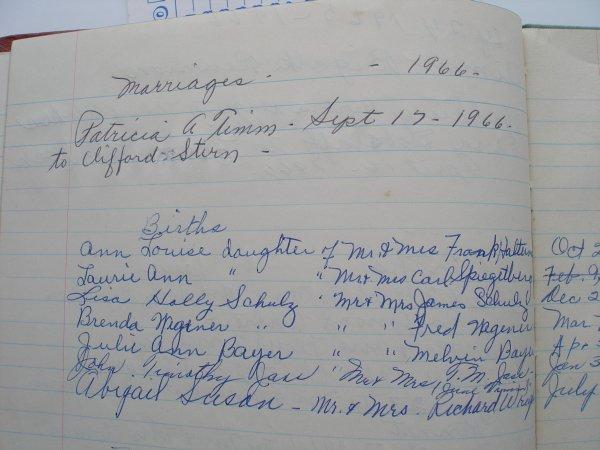 Marriages - - 1966 -
Patricia A Timm - Sept 17 - 1966.
to Clifford Stern -
Births
Ann Louise daughter of Mr. & Mrs Frank Oct 2
Laurie Ann " " Mr & Mrs Carl Feb. 9,
Lisa Holly Schulz " Mr & Mrs James Schulz Dec 2
Brenda Wagener " " " Fred Wagener Mar
Julie Ann Bayer " " Melvin Bayer Apr 3
John Timothy " Mr & Mrs T. M. Jan 3
(June Timm)
Abigail Susan - Mr. & Mrs. Richard July